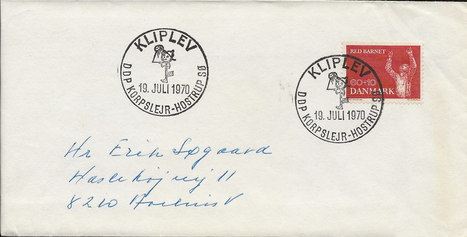 KLIPLEV
19. JULI 1970
DDP KORPSLEJR-HOSTRUP SØ
KLIPLEV
19. JULI 1970
DDP KORPSLEJR-HOSTRUP SØ
RED BARNET
60+10
DANMARK
Hr Erik Søgaard
Haslehøjvej 11
8210 Aarhus V